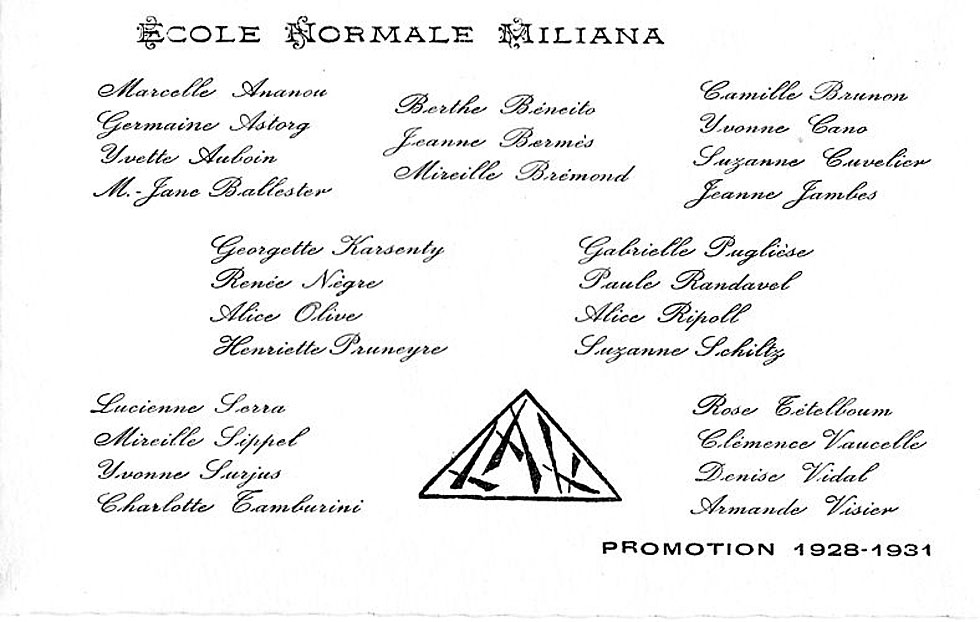 École Normale Miliana
Marcelle Ananou
Germaine Astorg
Yvette Auboin
M.-Jane Ballester
Berthe Béneito
Jeanne Bermès
Mireille Brémond
Camille Brunon
Yvonne Cano
Suzanne Cuvelier
Jeanne Jambes
Georgette Karsenty
Renée Nègre
Alice Olive
Henriette Pruneyre
Gabrielle Puglièse
Paule Randavel
Alice Ripoll
Suzanne Schiltz
Lucienne Serra
Mireille Sippel
Yvonne Surjus
Charlotte Tamburini
Rose Tételboum
Clémence Vaucelle
Denise Vidal
Armande Visier
PROMOTION 1928-1931